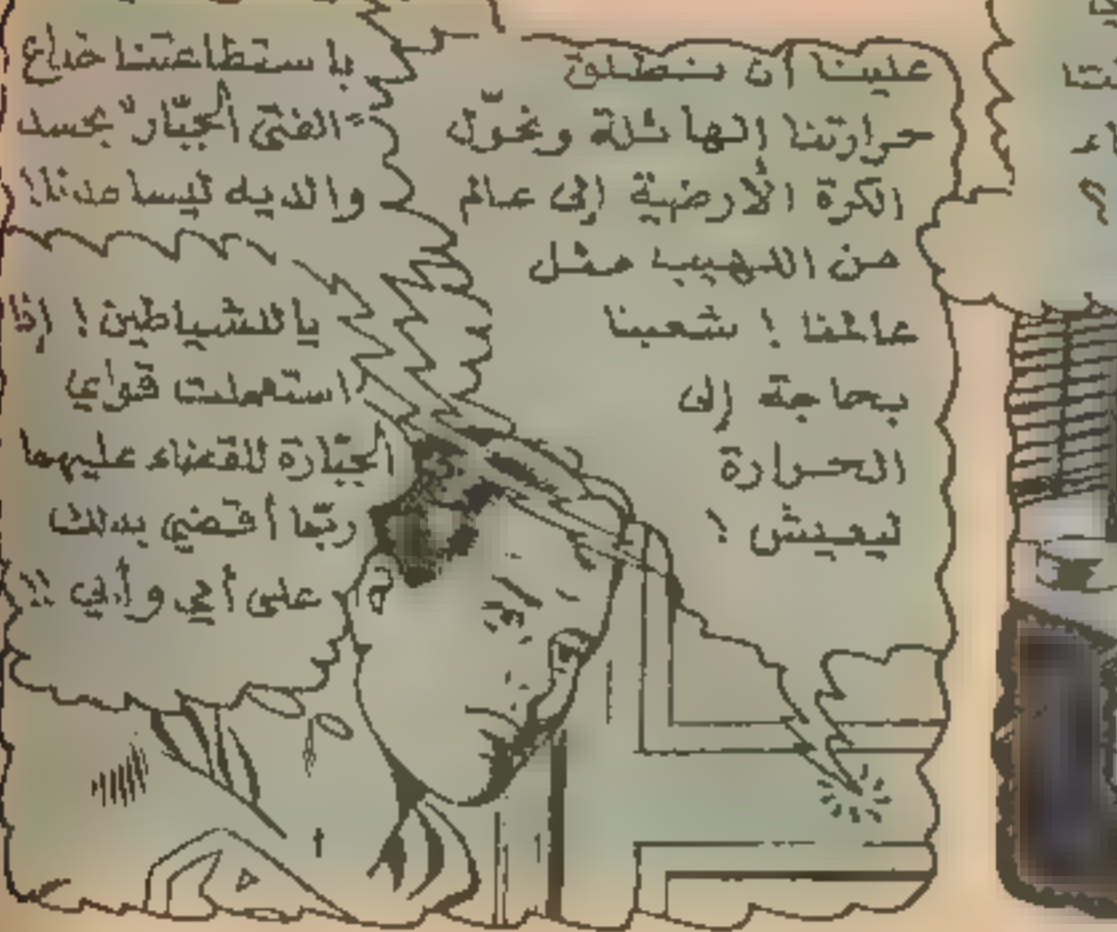 علينا أن نطلق
حرارتنا الهائلة ونحوّل
الكرة الأرضية إلى عالم
من اللهيب مثل
عالمنا ! شعبنا
بحاجة إلى
الحرارة
ليعيش !
باستطاعتنا خداع
"الفتى الجبّار" بجسد
والديه ليساعدنا !
ياللشياطين ! إذا
استعملت قواي
الجبّارة للقضاء عليهما
ربّما أقضي بذلك
على أمي وأبي !!